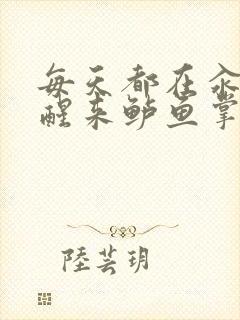 每天都在汆
醒来鲈鱼掌
陸芸玥